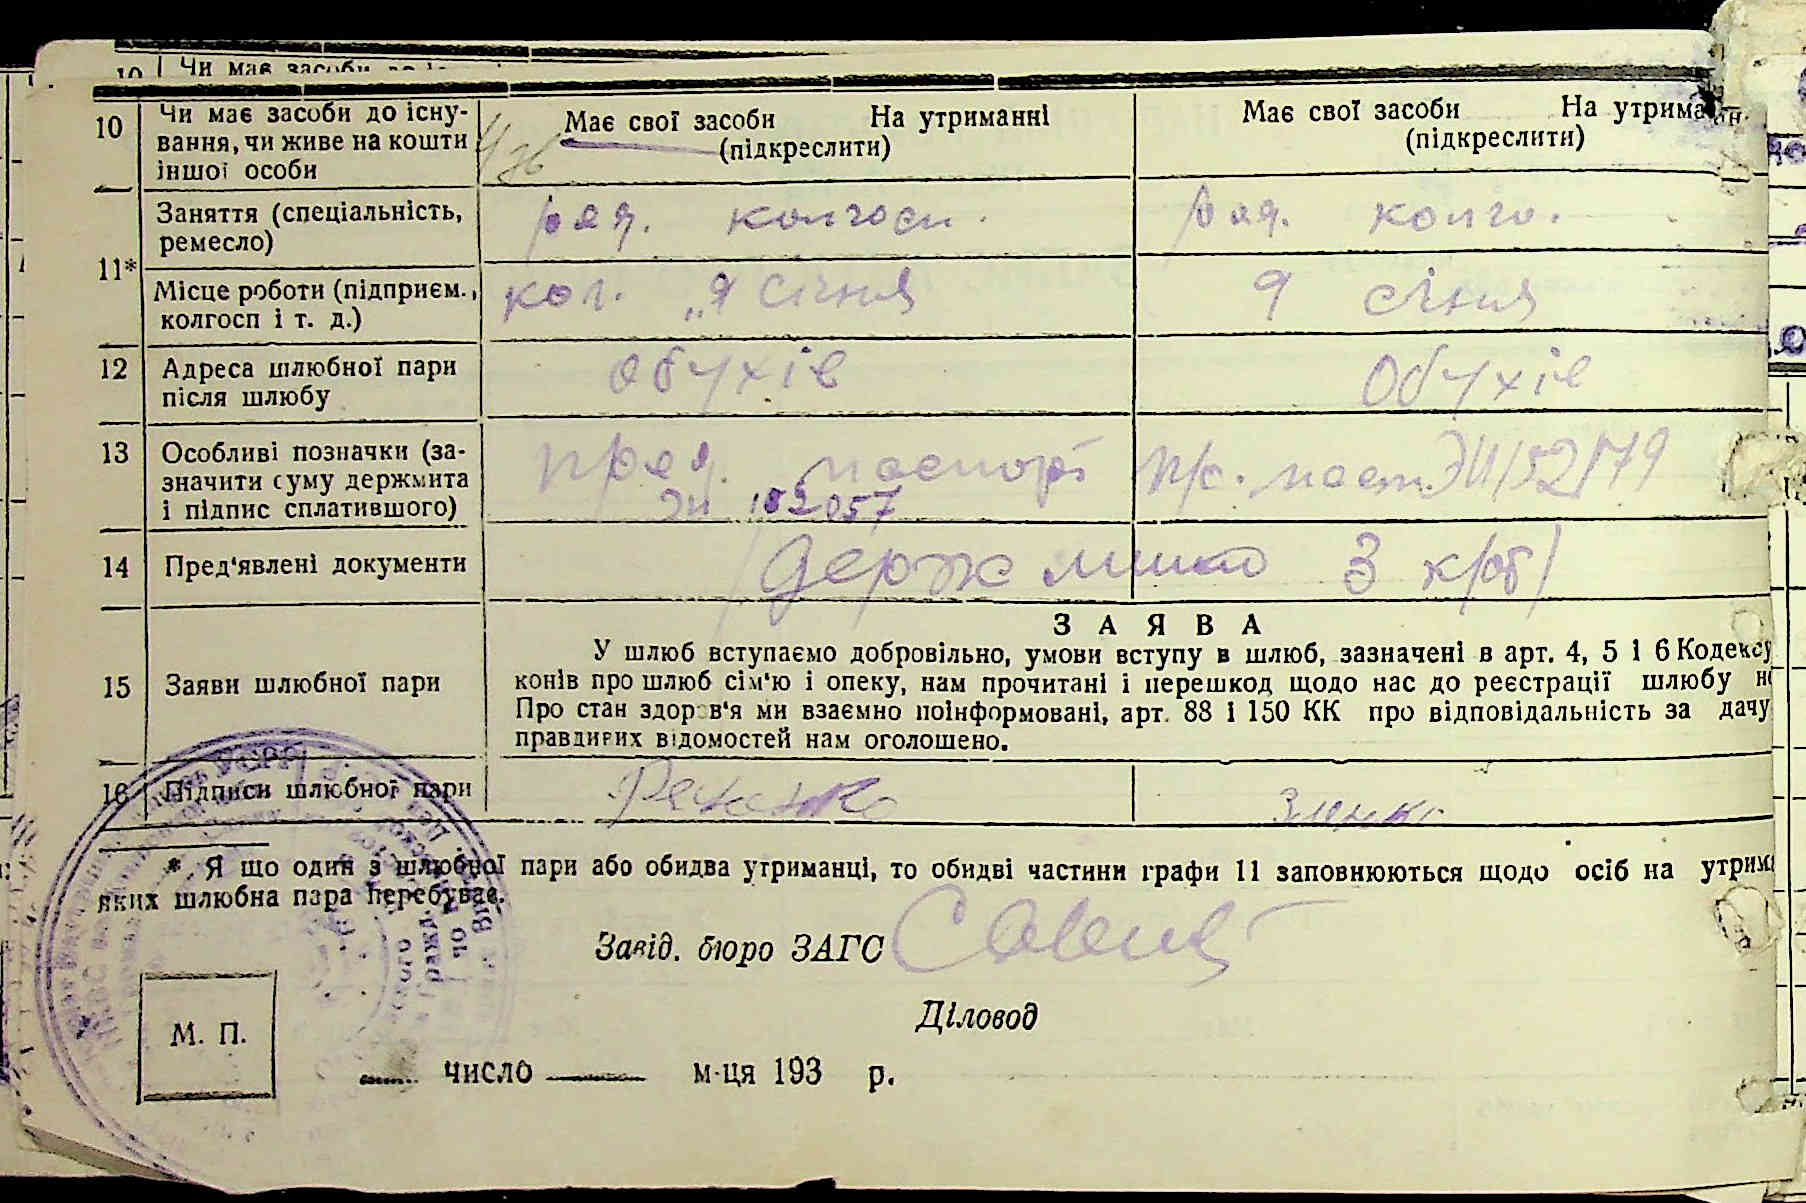 10 Чи має засоби до
10 Чи має засоби до існу-
вання, чи живе на кошти
іншої особи
Має свої засоби На утриманні
(підкреслити)
Має свої засоби На утриман.
(підкреслити)
11*
Заняття (спеціальність,
ремесло)
ряд. колгосп.
ряд. колго.
Місце роботи (підприєм.,
колгосп і т. д.)
кол. „9 січня
9 січня
12 Адреса шлюбної пари
після шлюбу
Обухів
Обухів
13 Особливі позначки (за-
значити суму держмита
і підпис сплатившого)
пред. паспорт
152057
14 Пред'явлені документи
держ мито 3 крб
15 Заяви шлюбної пари
ЗАЯВА
У шлюб вступаємо добровільно, умови вступу в шлюб, зазначені в арт. 4, 5 і 6 Кодексу
конів про шлюб сім'ю і опеку, нам прочитані і перешкод щодо нас до реєстрації шлюбу не
Про стан здоров'я ми взаємно поінформовані, арт. 88 і 150 КК про відповідальність за дачу
правдивих відомостей нам оголошено.
16 Підписи шлюбної пари
*. Я що один з шлюбної пари або обидва утриманці, то обидві частини графи 11 заповнюються щодо осіб на утрима
яких шлюбна пара перебуває.
Завід. бюро ЗАГС
Діловод
М. П.
число м-ця 193 р.